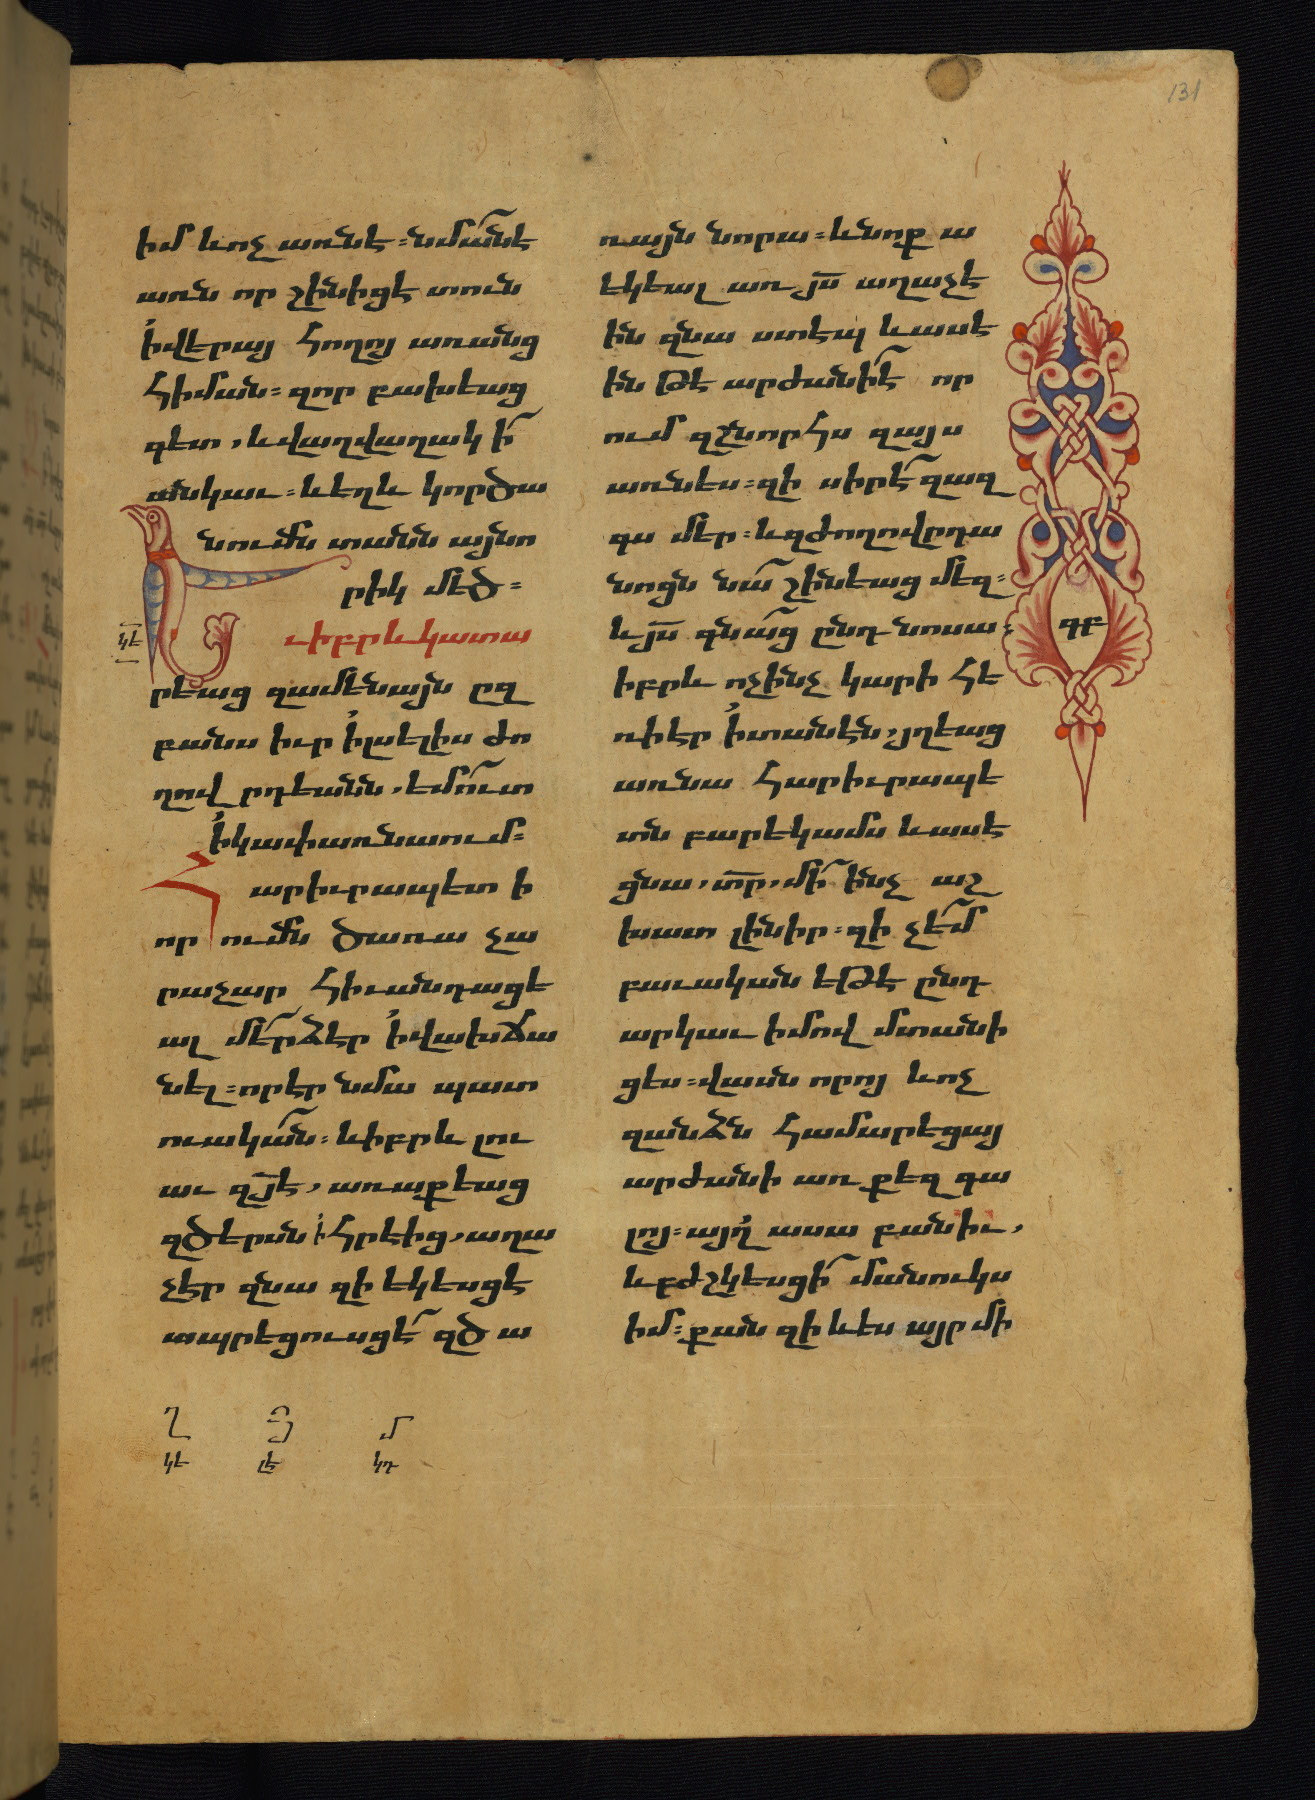 131
իմ և ոչ առնէ։ նման է
առն որ շինիցէ տուն
ի վերայ հողոյ առանց
հիման։ զոր բախեաց
գետ, և վաղվաղակի
անկաւ։ և եղև կործա
նումն տանն այնո
րիկ մեծ։
կէ
Եւ իբրև կատա
րեաց զամենայն ըզ
բանս իւր ի լսելիս ժո
ղովըրդեանն, եմուտ
ի կափառնաում։
Հարիւրապետի
որ ումն ծառա չա
րաչար հիւանդացե
ալ մերձ էր ի վախճա
նել։ որ էր նմա պատ
ուական։ և իբրև լու
աւ զյ՟ե, առաքեաց
զծերսն ի հրէից, աղա
չէր զնա զի եկեսցէ
ապրեցուսցէ զծա
ռայն նորա։ և նոքա
եկեալ առ յ՟ս աղաչէ
ին զնա ստէպ և ասէ
ին թէ արժանի է որ
ում զշնորհս զայս
առնես։ զի սիրէ զազ
գս մեր։ և զժողովըրդա
նոցն նա շինեաց մեզ։
և յ՟ս գնաց ընդ նոսա։
իբրև ոչ ինչ կարի հե
ռի էր ի տանէն, յղեաց
առ նա հարիւրապե
տն բարեկամս և ասէ
ցնա, տ՟ր, մի ինչ աշ
խատ լինիր։ զի չեմ
բաւական եթէ ընդ
արկաւ իմով մտանի
ցես։ վասն որոյ և ոչ
զանձն համարեցայ
արժանի առ քեզ գա
լոյ։ այղ ասա բանիւ,
և բժշկեսցի մանուկս
իմ։ քանզի և ես այր մի
գբ
Ղ Յ Մ
կէ լե կդ